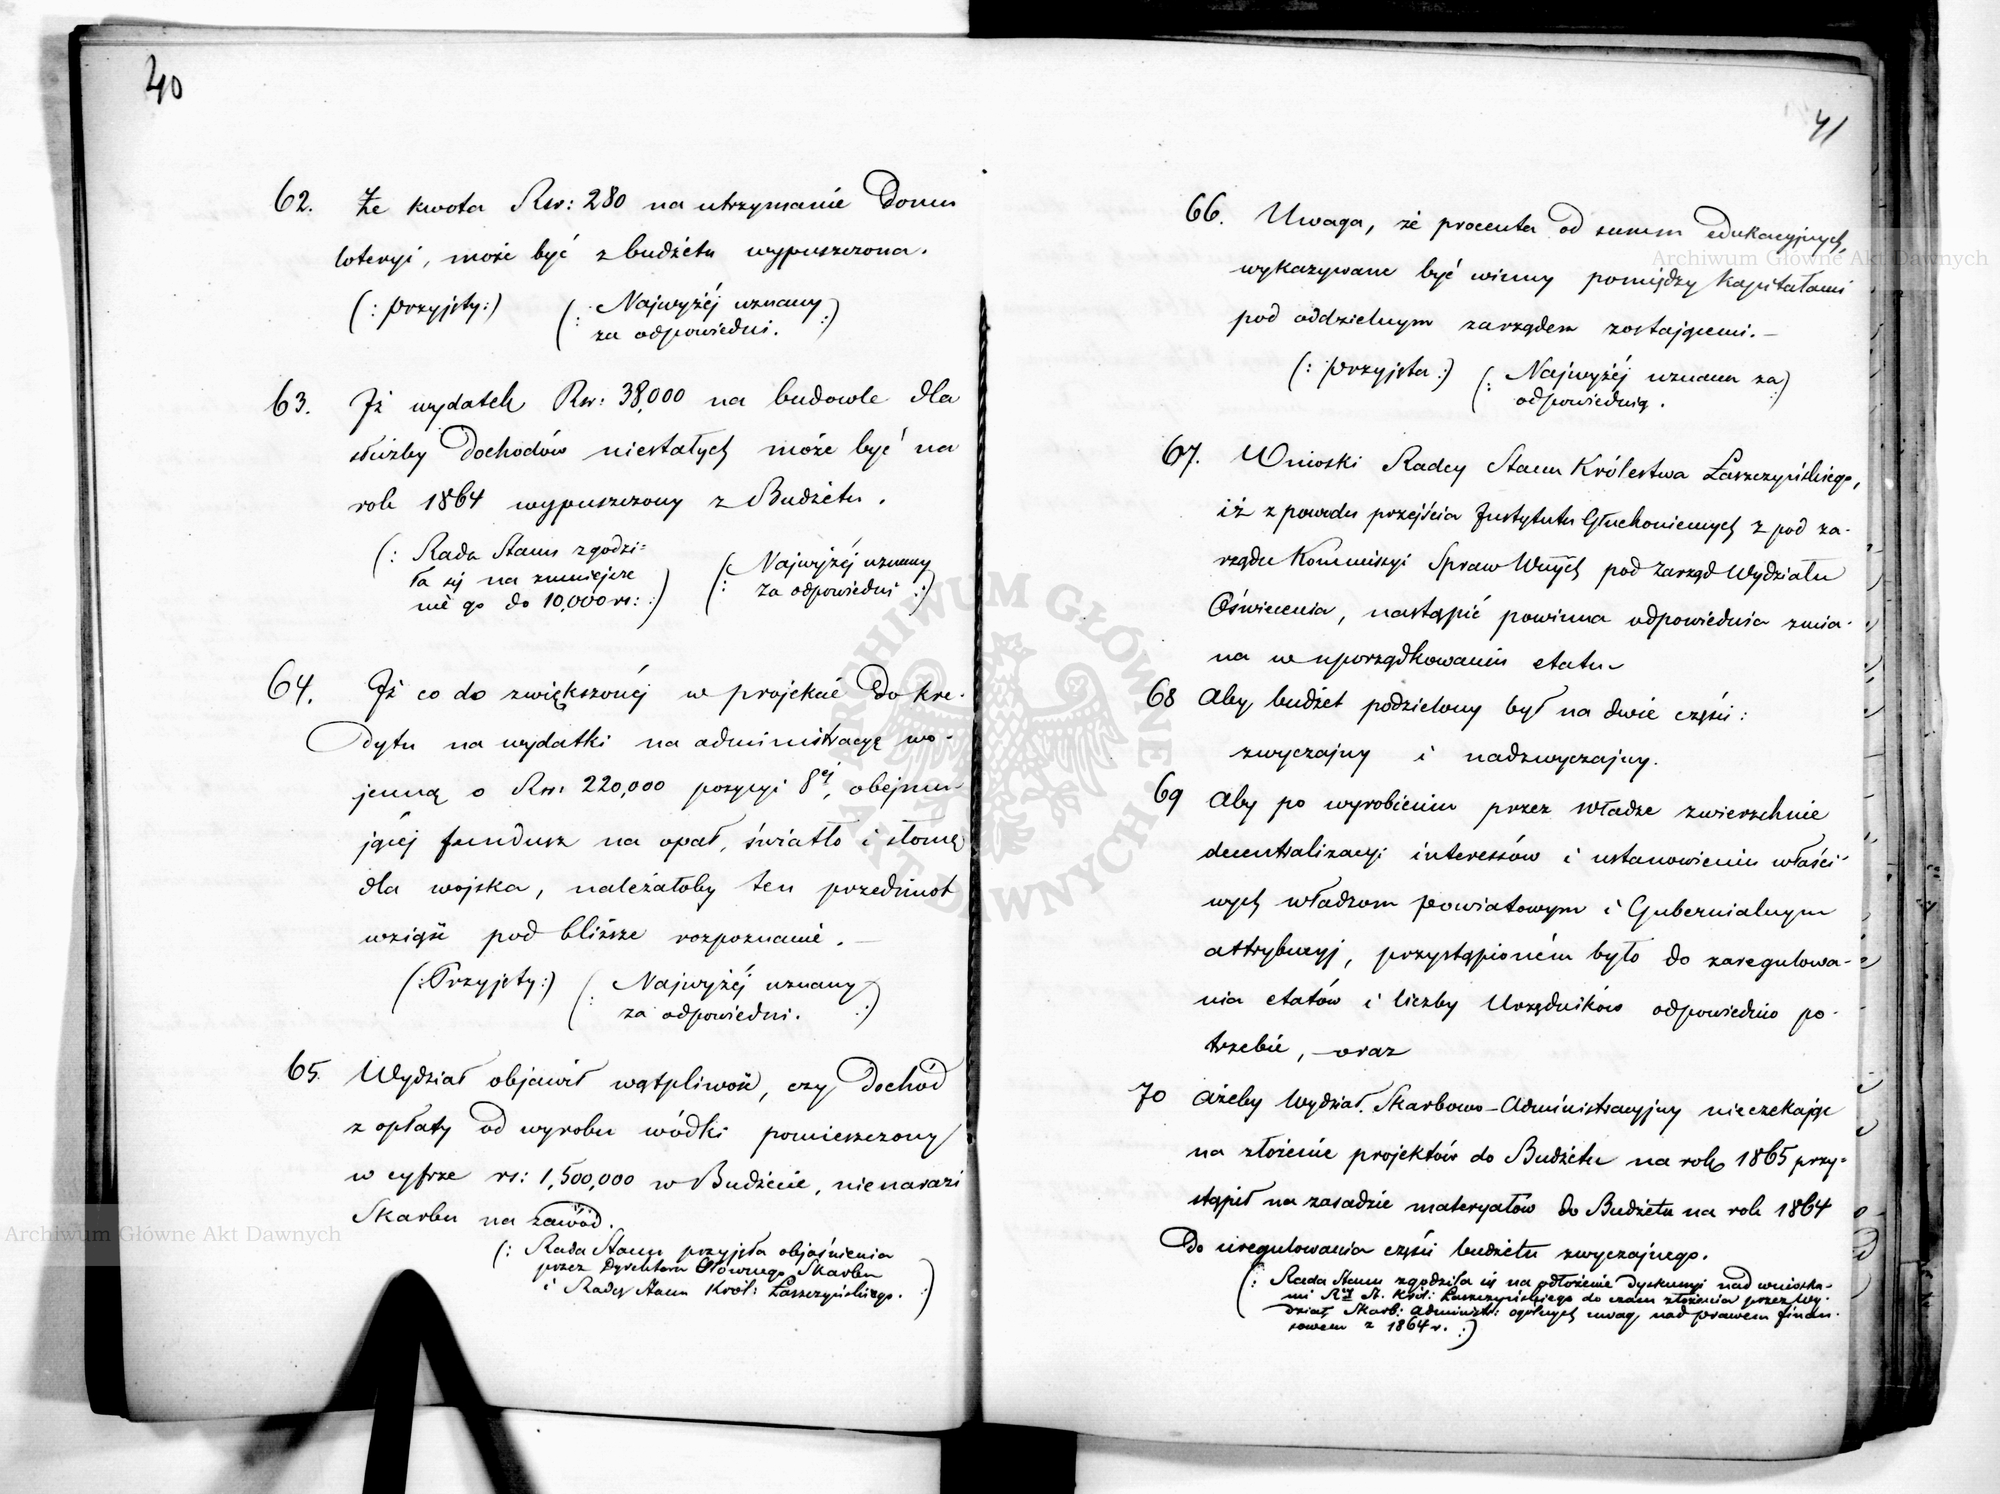 40
62. Że kwota Rsr: 280 na utrzymanie Domu
loteryi, może być z budżetu wypuszczona.
(: przyjęty:) (: Najwyżej uznany
za odpowiedni. :)
63. Iż wydatek Rsr: 38,000 na budowle dla
służby Dochodów niestałych może być na
rok 1864 wypuszczony z Budżetu.
(: Rada Stanu zgodzi=
ła się na zmniejsze
nie go do 10,000 rs: :)
(: Najwyżej uznany
za odpowiedni :)
64. Iż co do zwiększonéj w projekcie Do kre-
dytu na wydatki na administracyę wo-
jenną o Rsr: 220,000 pozycyi 8ej, obejmu-
jącéj fundusz na opał, światło i słomę
dla wojska, należałoby ten przedmiot
wziąść pod bliższe rozpoznanie. —
(: Przyjęty :) (: Najwyżéj uznany
za odpowiedni. :)
65. Wydział objawił wątpliwość, czy Dochód
z opłaty od wyrobu wódki pomieszczony
w cyfrze rs: 1,500,000 w Budżecie, nienarazi
Skarbu na zawód.
(: Rada Stanu przyjęła objaśnienia
przez Dyrektora Głównego Skarbu
i Radcy Stanu Król: Łaszczyńskiego. :)
41
66. Uwaga, że procenta od summ edukacyjnych,
wykazywane być winny pomiędzy kapitałami
pod oddzielnym zarządem zostającemi. —
(: przyjęta :) (: Najwyżéj uznana za
odpowiednią. :)
67. Wnioski Radcy Stanu Królestwa Łaszczyńskiego,
iż z powodu przejścia Instytutu Głuchoniemych z pod za-
rządu Kommissyi Spraw Wnych pod zarząd Wydziału
Oświecenia, nastąpić powinna odpowiednia zmia-
na w uporządkowaniu etatu
68 Aby budżet podzielony był na dwie części:
zwyczajny i nadzwyczajny.
69 Aby po wyrobieniu przez Władze zwierzchnie
decentralizacyi interessów i ustanowieniu właści-
wych władzom powiatowym i Gubernialnym
attrybucyj, przystąpioném było do zaregulowa-
nia etatów i liczby Urzędników odpowiednio po-
trzebie, — oraz
70 Ażeby Wydział Skarbowo-Administracyjny nieczekając
na złożenie projektów do Budżetu na rok 1865 przy-
stąpił na zasadzie materyałów do Budżetu na rok 1864
Do uregulowania części budżetu zwyczajnego.
(: Rada Stanu zgodziła się na odłożenie Dyskusyi nad wnioska-
mi Rcy St. Król: Łaszczyńskiego do czasu złożenia przez Wy-
dział Skarb: Administr: ogólnych uwag, nad prawem finan-
sowém z 1864 r. :)
Archiwum Główne Akt Dawnych
Archiwum Główne Akt Dawnych
ARCHIWUM GŁÓWNE AKT DAWNYCH